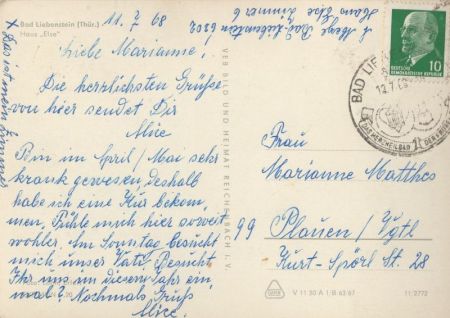 Bad Liebenstein (Thür.)
Haus „Else"
11. 7. 68
x Das ist mein Zimmer
Liebe Marianne!
Die herrlichsten Grüße
von hier sendet Dir
Alice
Bin im April / Mai sehr
krank gewesen, deshalb
habe ich eine Kur bekom,
men, Fühle mich hier soweit
wohler. Am Sonntag besucht
mich unser Vati. Besucht
Ihr uns in diesem Jahr ein,
mal? Nochmals Gruß
Alice.
VEB BILD UND HEIMAT REICHENBACH i. V.
Bad Liebenstein 6202
Haus Else Zimmer 6
10
DEUTSCHE
DEMOKRATISCHE REPUBLIK
BAD LIE
12.7.68
Frau
Marianne Matthes
99 Plauen / Vgtl
Kurt-Spörl St. 28
V 11 30 A 1/B 63/67
11/2772